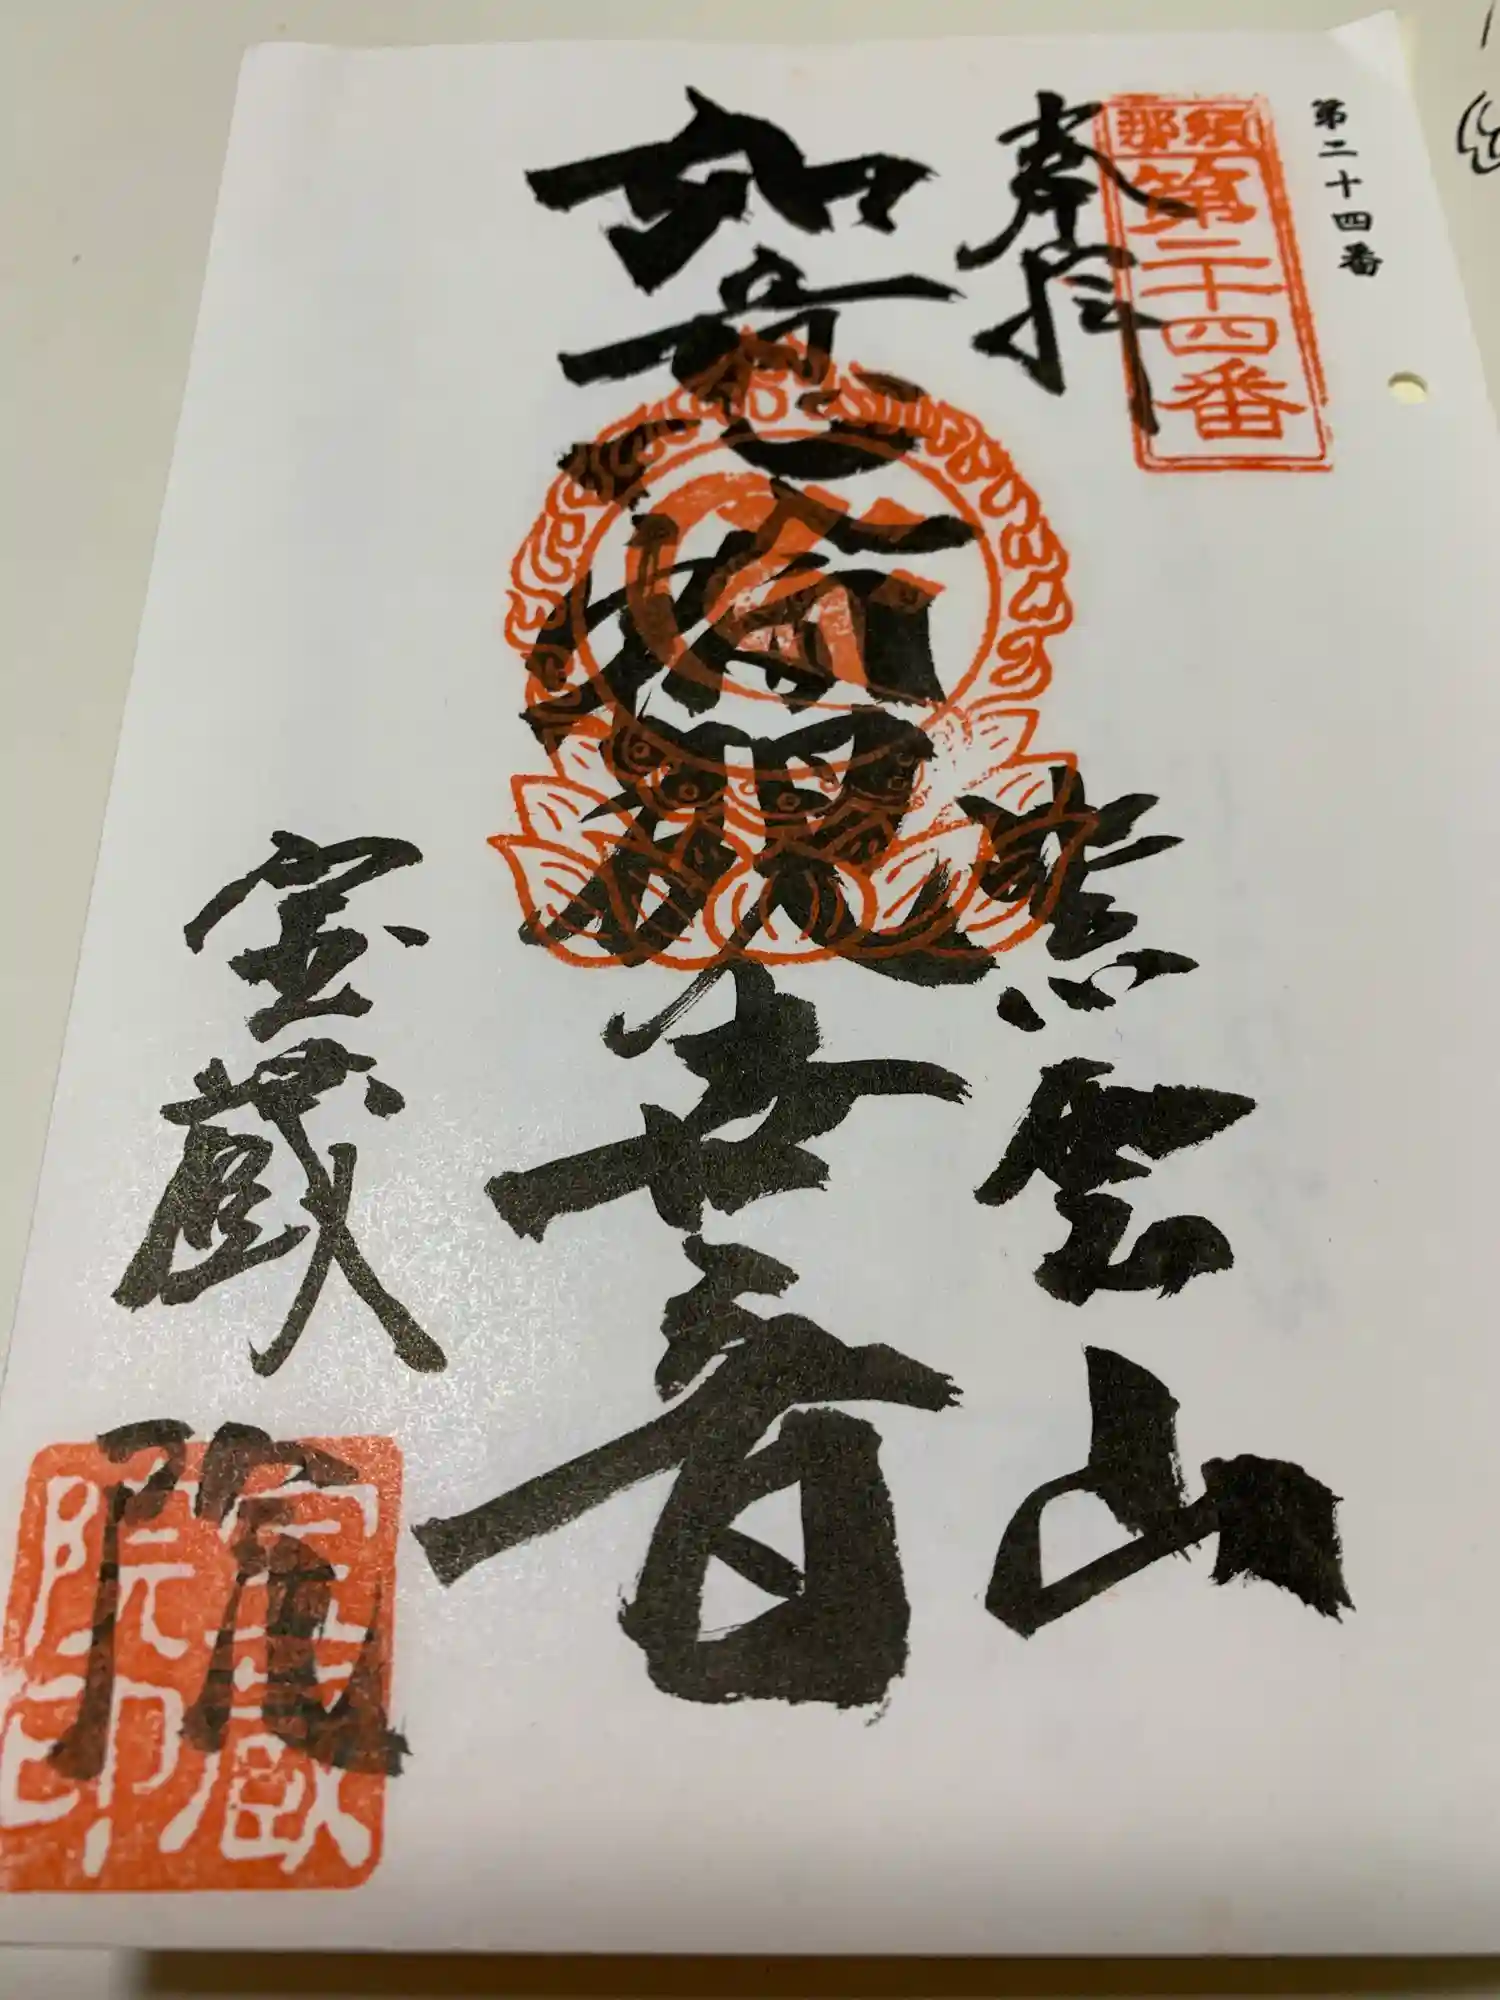 第二十四番
那須
第二十四番
奉拝
紫雲山
如意輪観世音
宝蔵院
宝蔵
院印